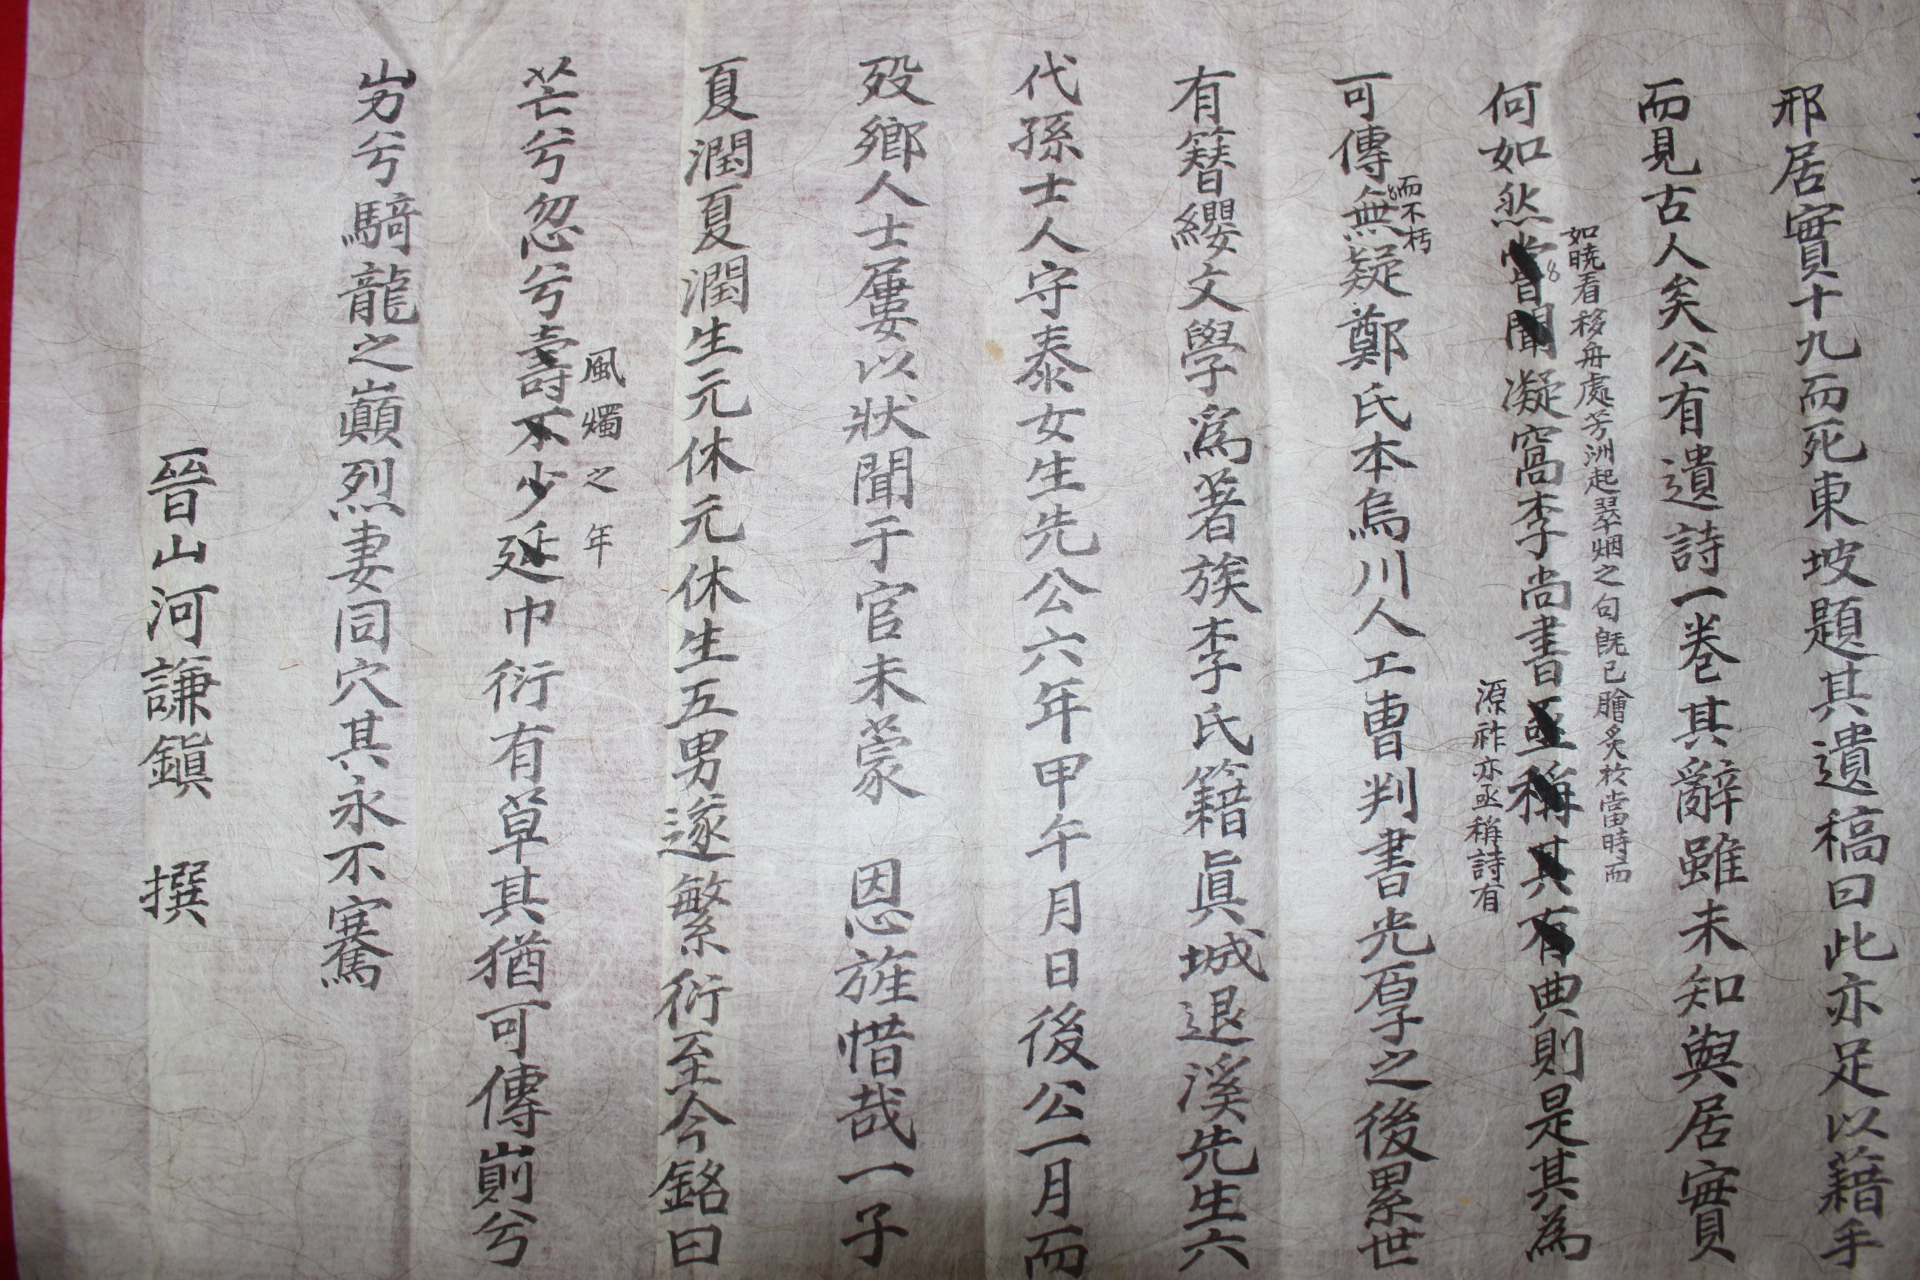 邢居實十九而死東坡題其遺稿曰此亦足以藉手
而見古人矣公有遺詩一卷其辭雖未知與居實
如曉看移舟處芳洲起翠烟之句旣已膾炙於當時而
何如然嘗聞凝窩李尚書亟稱其有典則是其為
源祚亦亟稱詩有
而不朽
可傳無疑鄭氏本烏川人工曹判書光厚之後累世
有簪纓文學爲著族李氏籍眞城退溪先生六
代孫士人守泰女生先公六年甲午月日後公一月而
歿鄉人士屢以狀聞于官未蒙 恩旌惜哉一子
夏潤夏潤生元休元休生五男遂繁衍至今銘曰
風燭之年
芒兮忽兮壽不少延巾衍有草其猶可傳崱兮
屴兮騎龍之巓烈妻同穴其永不騫
晉山河謙鎭 撰